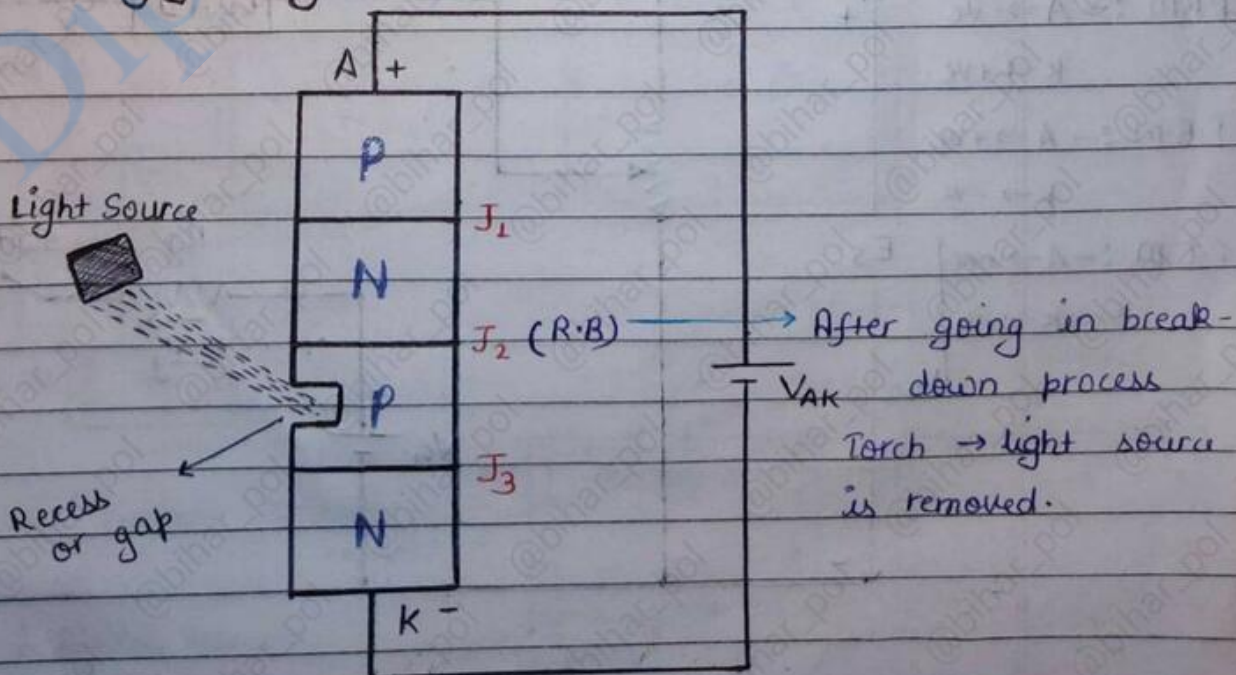 A +
P
Light Source
J1
N
J2 (R·B) → After going in break-
down process
VAK
P
Torch → light source
is removed.
J3
Recess
or gap
N
K -
@bihar_pol